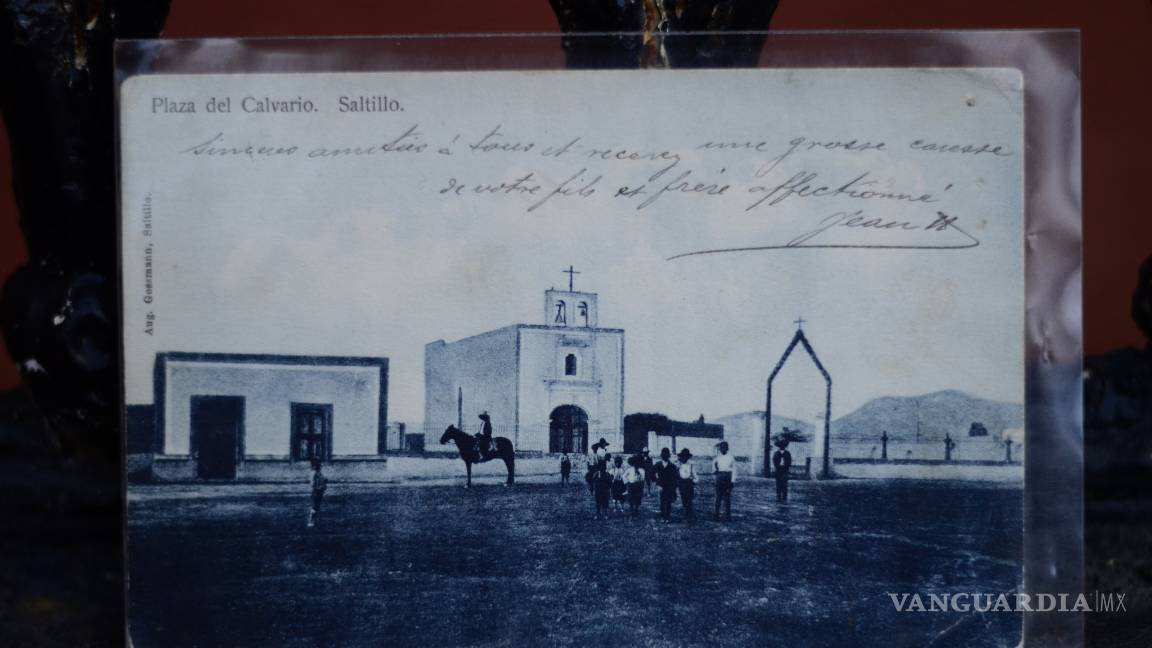 Plaza del Calvario. Saltillo.
Sincères amitiés à tous et recevez une grosse caresse
de votre fils et frère affectionné
Jean H
Aug. Gossmann, Saltillo.
VANGUARDIA|MX